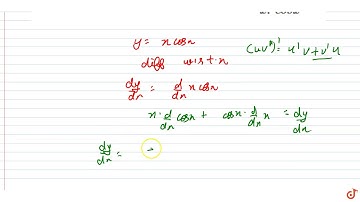 y = x cosx
diff w.r.t.x
(uv)' = u'v + v'u
dy/dx = d/dx x cosx
x · d/dx cosx + cosx · d/dx x = dy/dx
dy/dx =